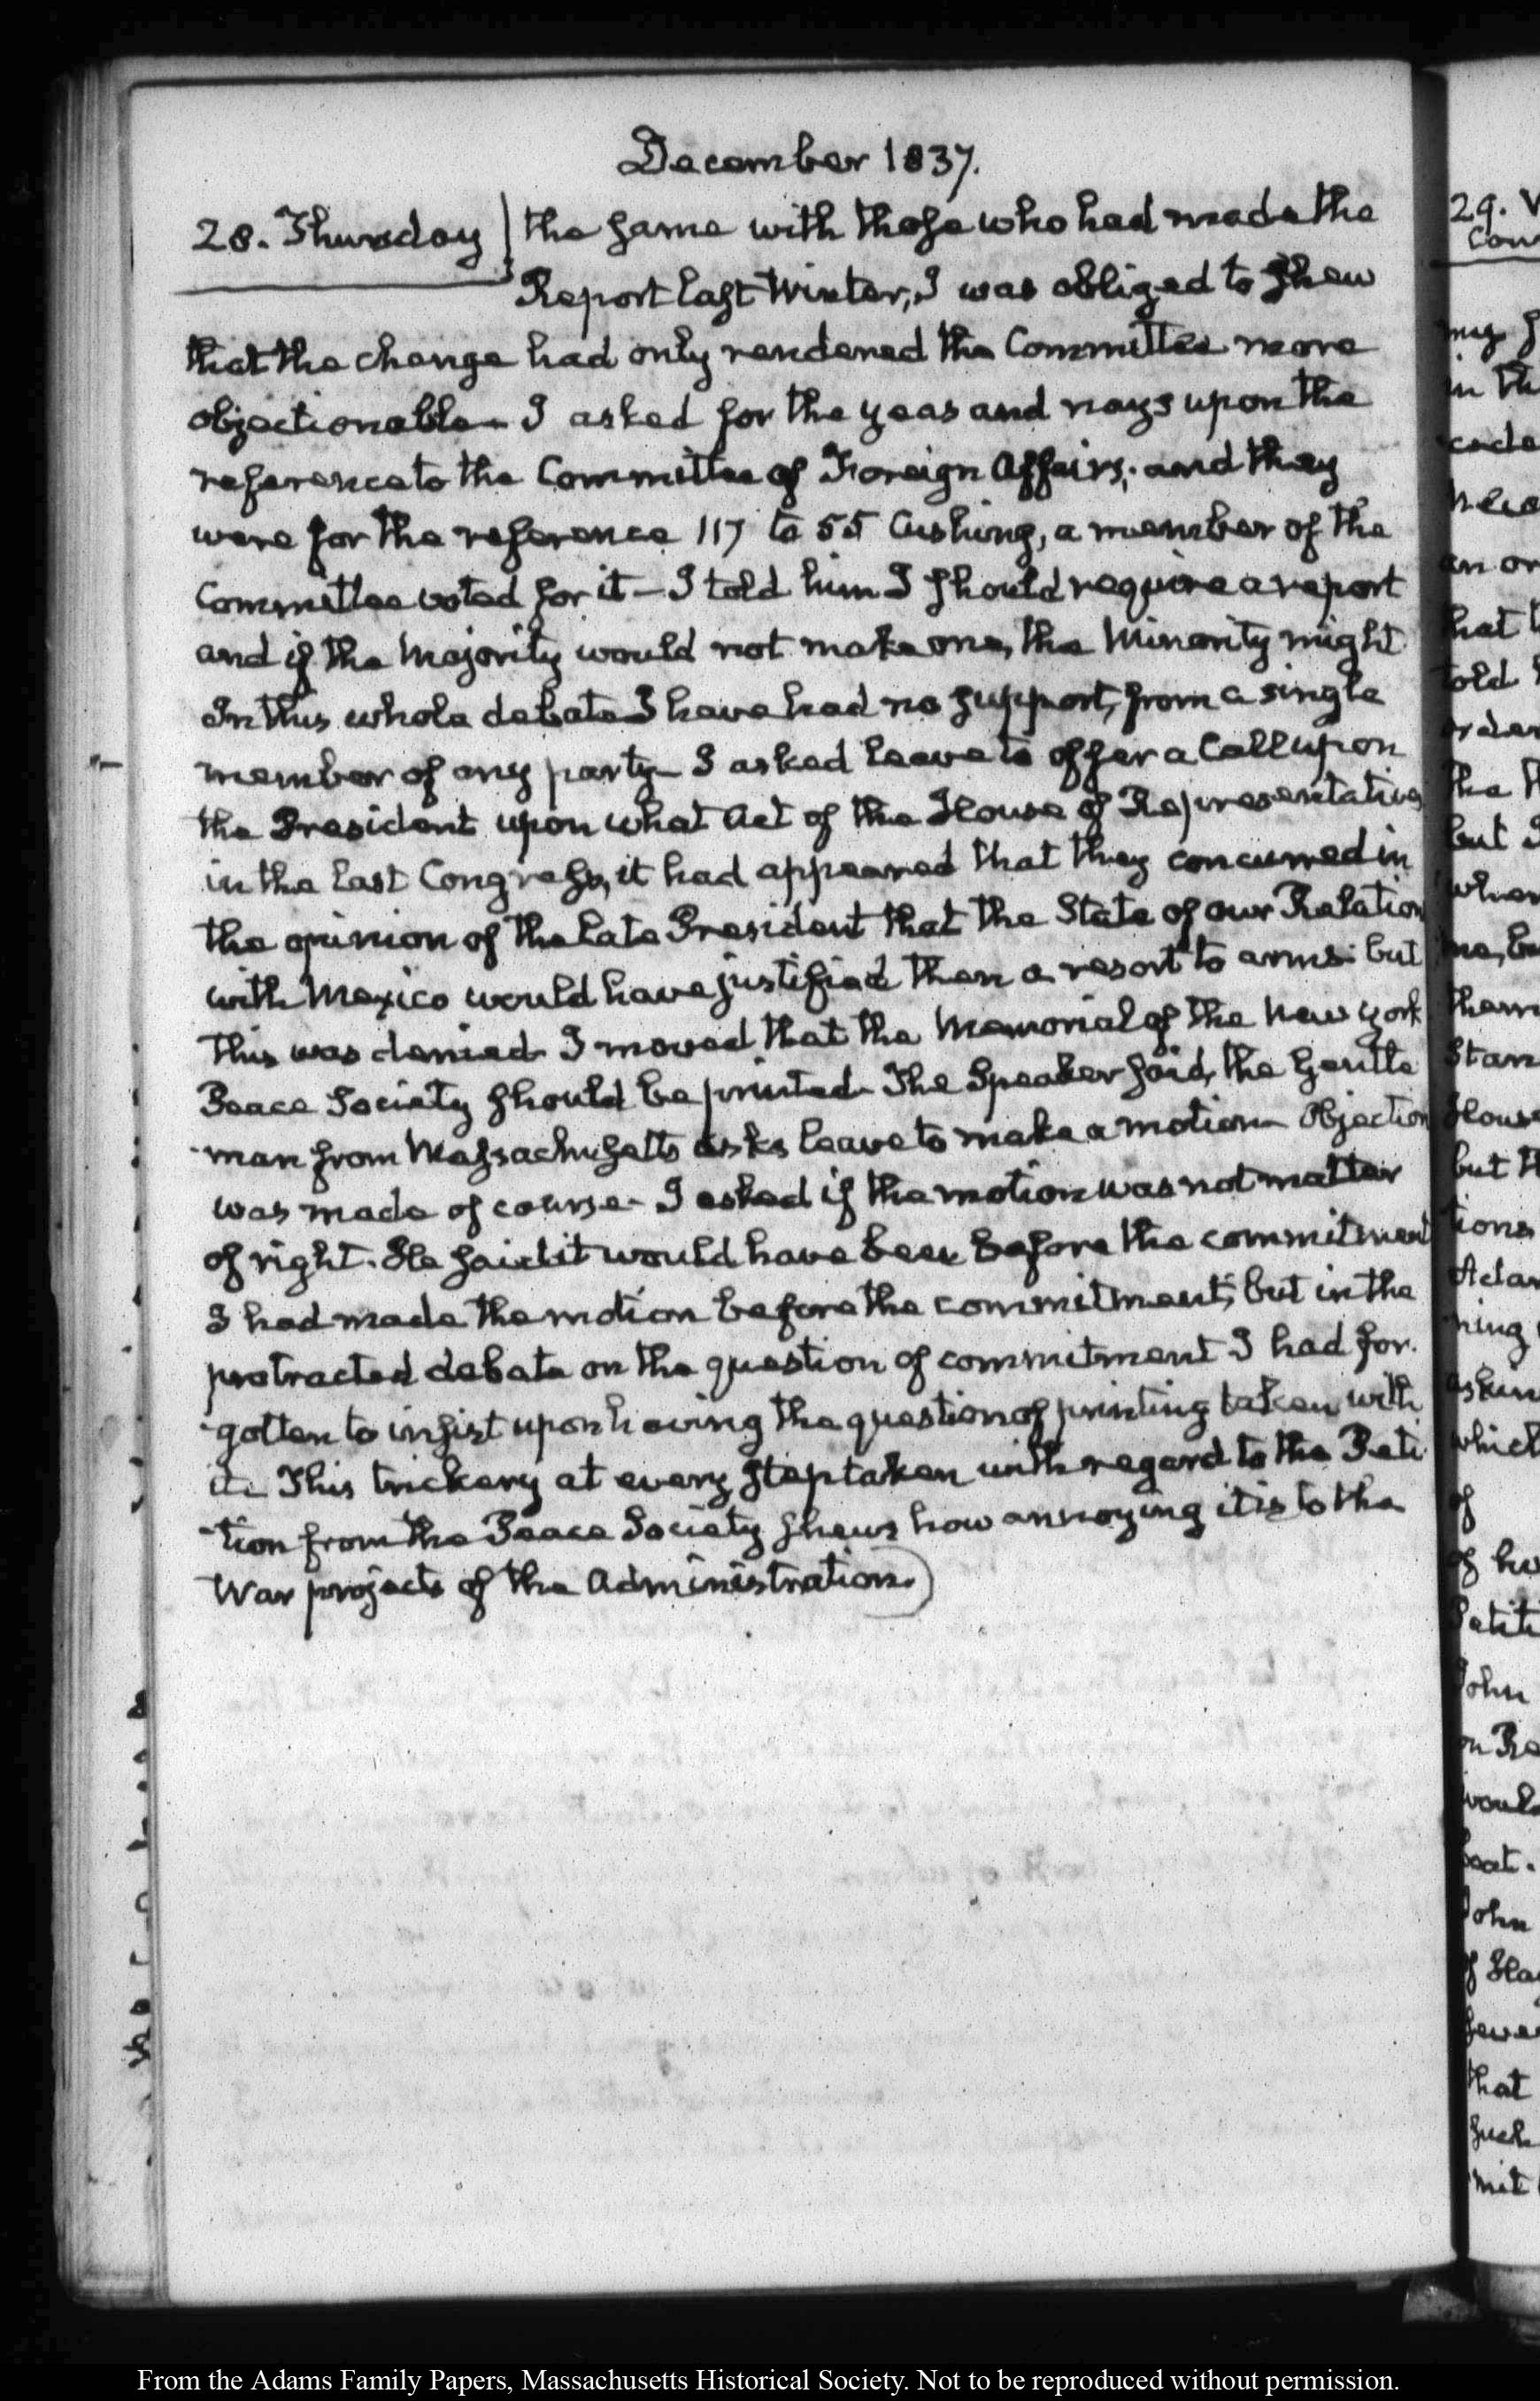 December 1837.
28. Thursday the same with those who had made the
Report last Winter, I was obliged to shew
that the change had only rendered the Committee more
objectionable – I asked for the yeas and nays upon the
reference to the Committee of Foreign Affairs; and they
were for the reference 117 to 55 Cushing, a member of the
Committee voted for it – I told him I should require a report
and if the Majority would not make one, the Minority might
In this whole debate I have had no support, from a single
member of any party – I asked leave to offer a Call upon
the President upon what Act of the House of Representatives
in the last Congress, it had appeared that they concurred in
the opinion of the late President that the State of our Relation
with Mexico would have justified then a resort to arms: but
this was denied – I moved that the Memorial of the New York
Peace Society should be printed – The Speaker said, the Gentle
man from Massachusetts asks leave to make a motion – Objection
was made of course – I asked if the motion was not matter
of right. He said it would have been before the commitment
I had made the motion before the commitment; but in the
protracted debate on the question of commitment I had for-
-gotten to insist upon having the question of printing taken with
it – This trickery at every step taken with regard to the Peti
-tion from the Peace Society shews how annoying it is to the
War projects of the Administration.)
29.
my
in th
hat
told
the
but
when
them
Stan
House
but th
tions
ning
which
of
of
John
that
such
mit
From the Adams Family Papers, Massachusetts Historical Society. Not to be reproduced without permission.